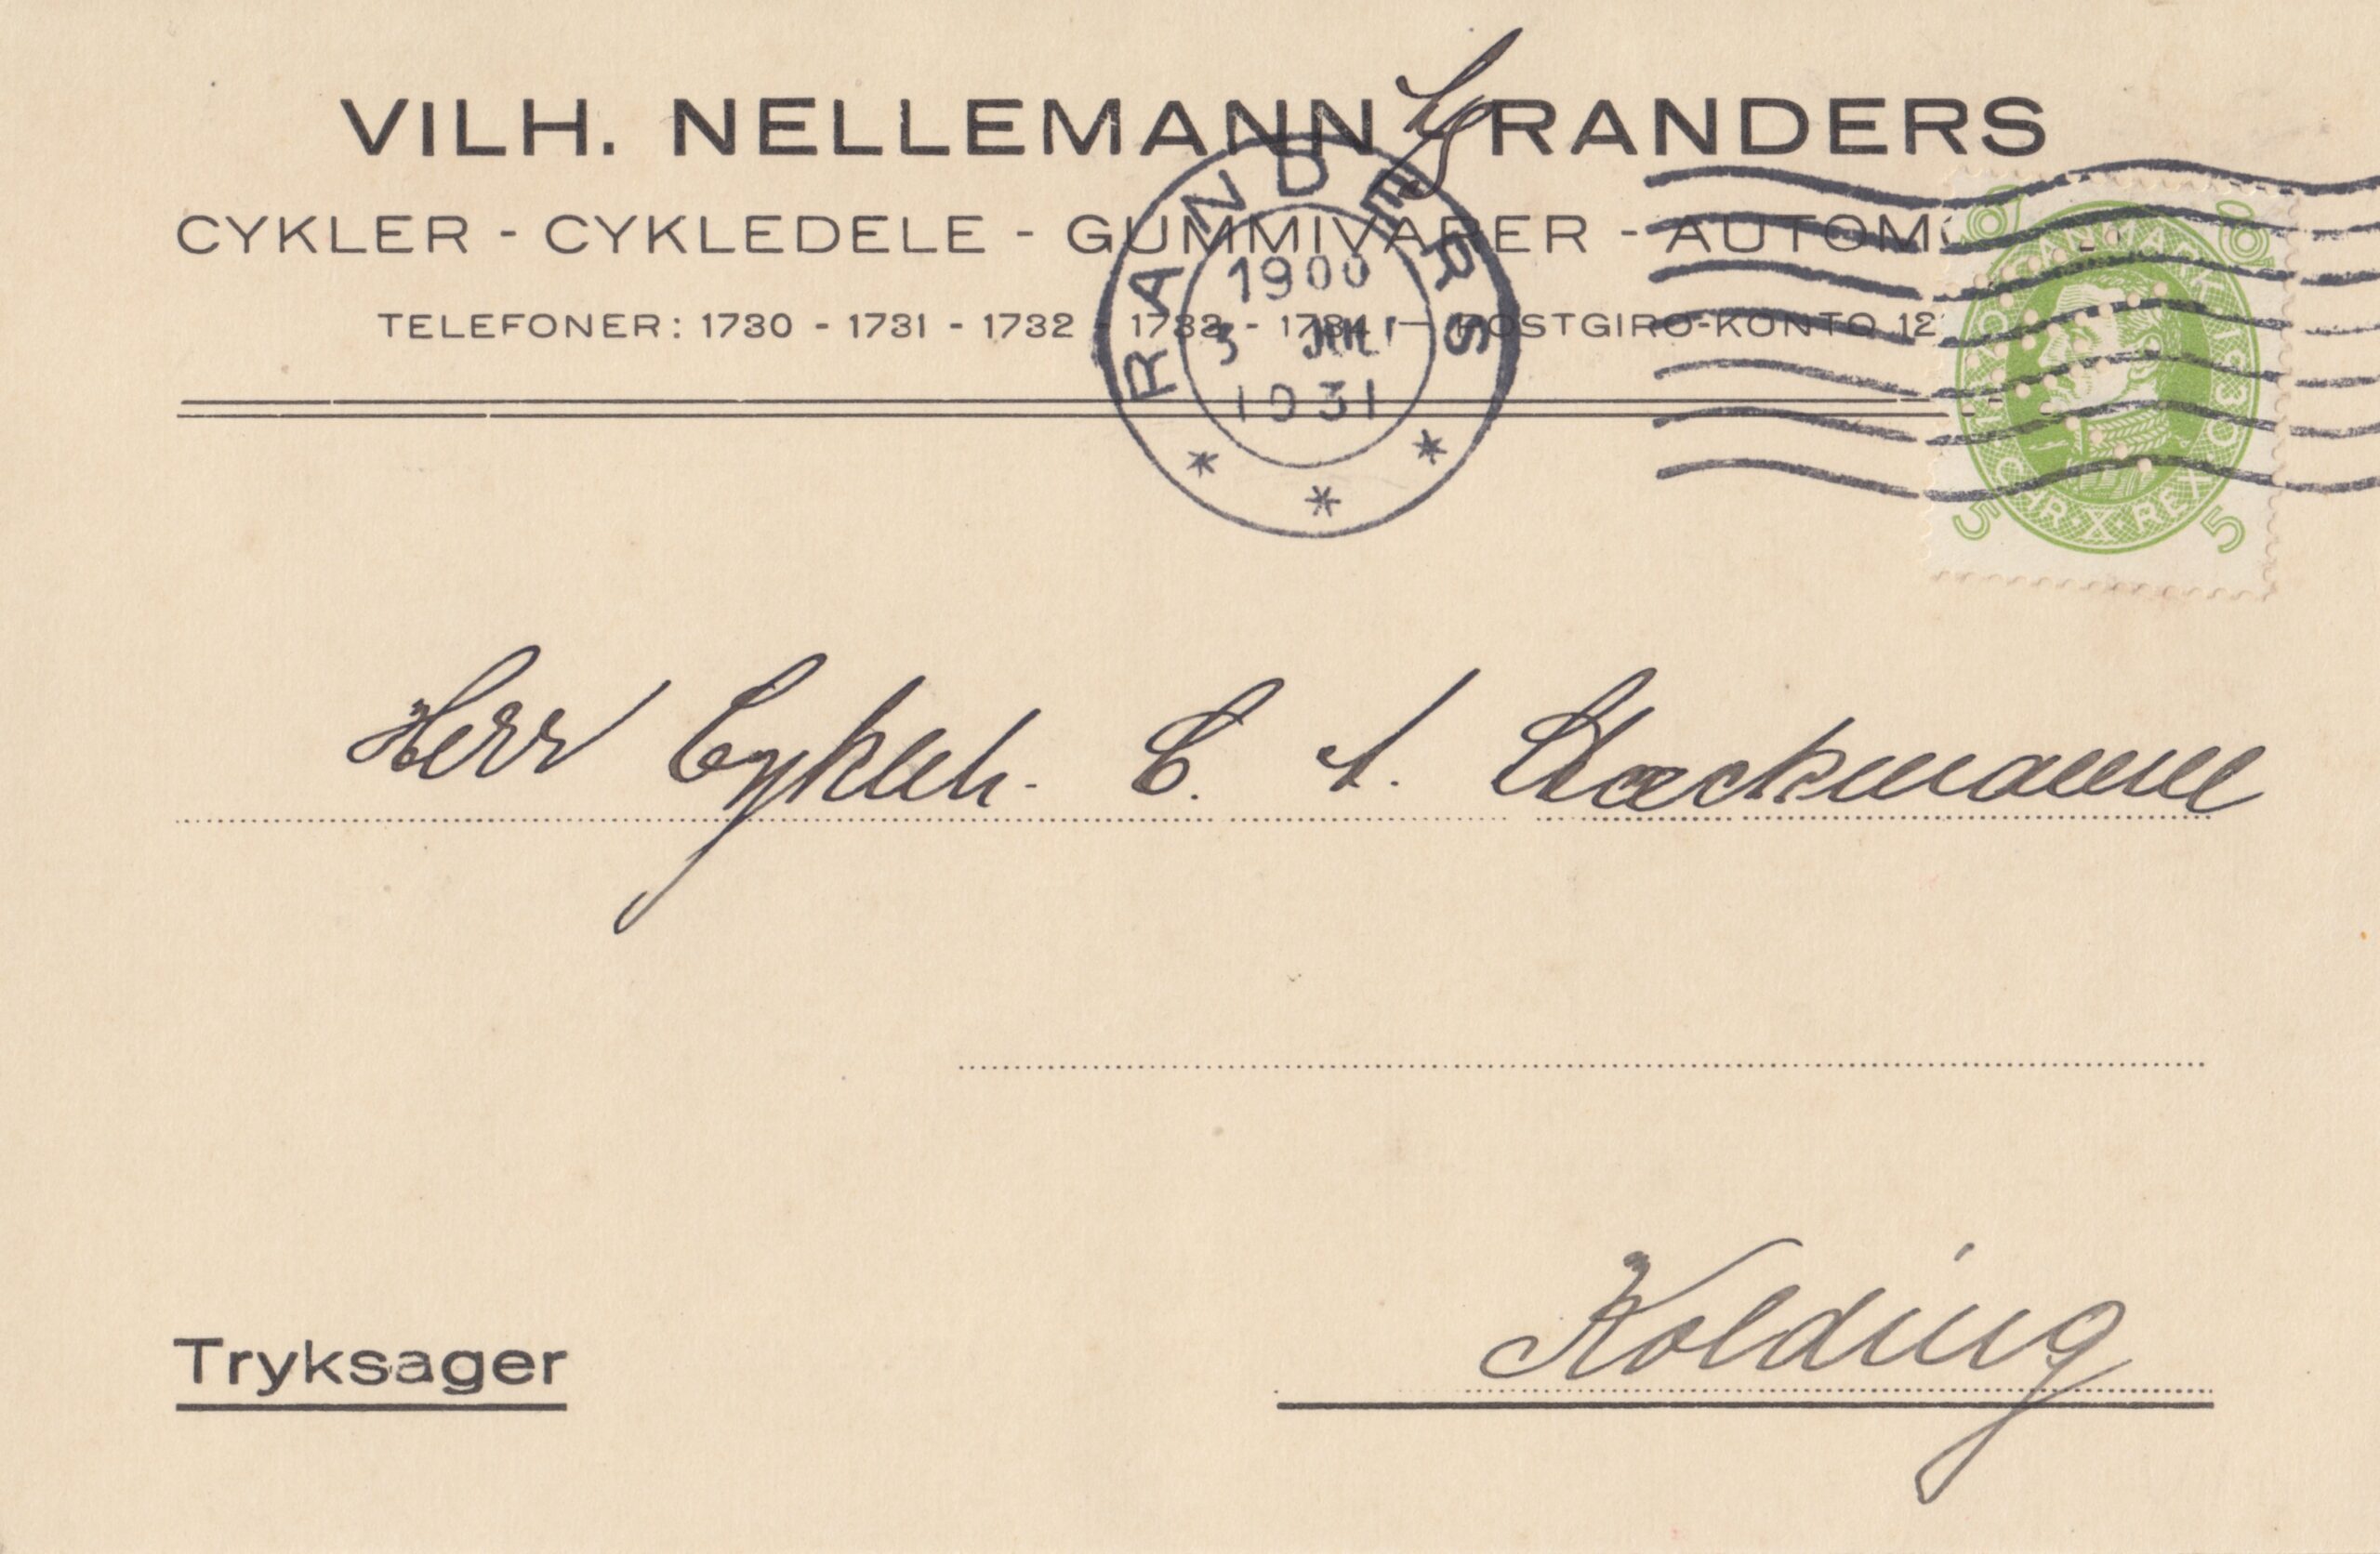 VILH. NELLEMANN RANDERS
CYKLER - CYKLEDELE - GUMMIVARER - AUTOMO
TELEFONER: 1730 - 1731 - 1732 - 1733 - 1734 — POSTGIRO-KONTO 12
RANDERS
1900
3
1931
DANMARK
1870 1930
CHR·X·REX
5 5
Herr Cykleh. C. S. Stæckmann
Kolding
Tryksager